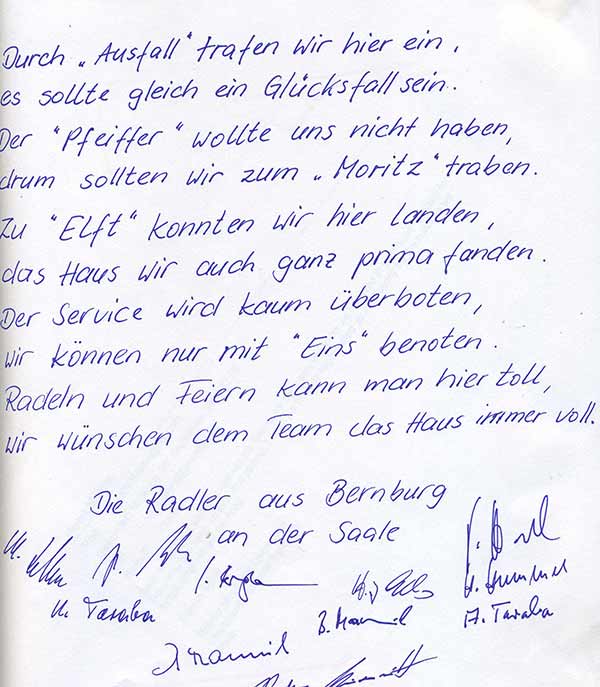 Durch „Ausfall" trafen wir hier ein,
es sollte gleich ein Glücksfall sein.
Der "Pfeiffer" wollte uns nicht haben,
drum sollten wir zum „Moritz" traben.
Zu "Elft" konnten wir hier landen,
das Haus wir auch ganz prima fanden.
Der Service wird kaum überboten,
wir können nur mit "Eins" benoten.
Radeln und Feiern kann man hier toll,
wir wünschen dem Team das Haus immer voll.
Die Radler aus Bernburg
an der Saale
H. Taraba
A. Taraba